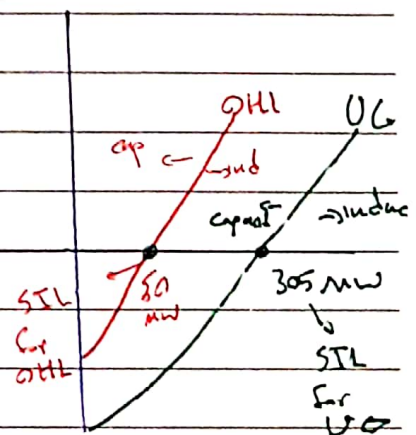 OHL
UG
cap ← → ind
capacit ← → induc
50
MW
305 MW
SIL
for
OHL
SIL
for
UG